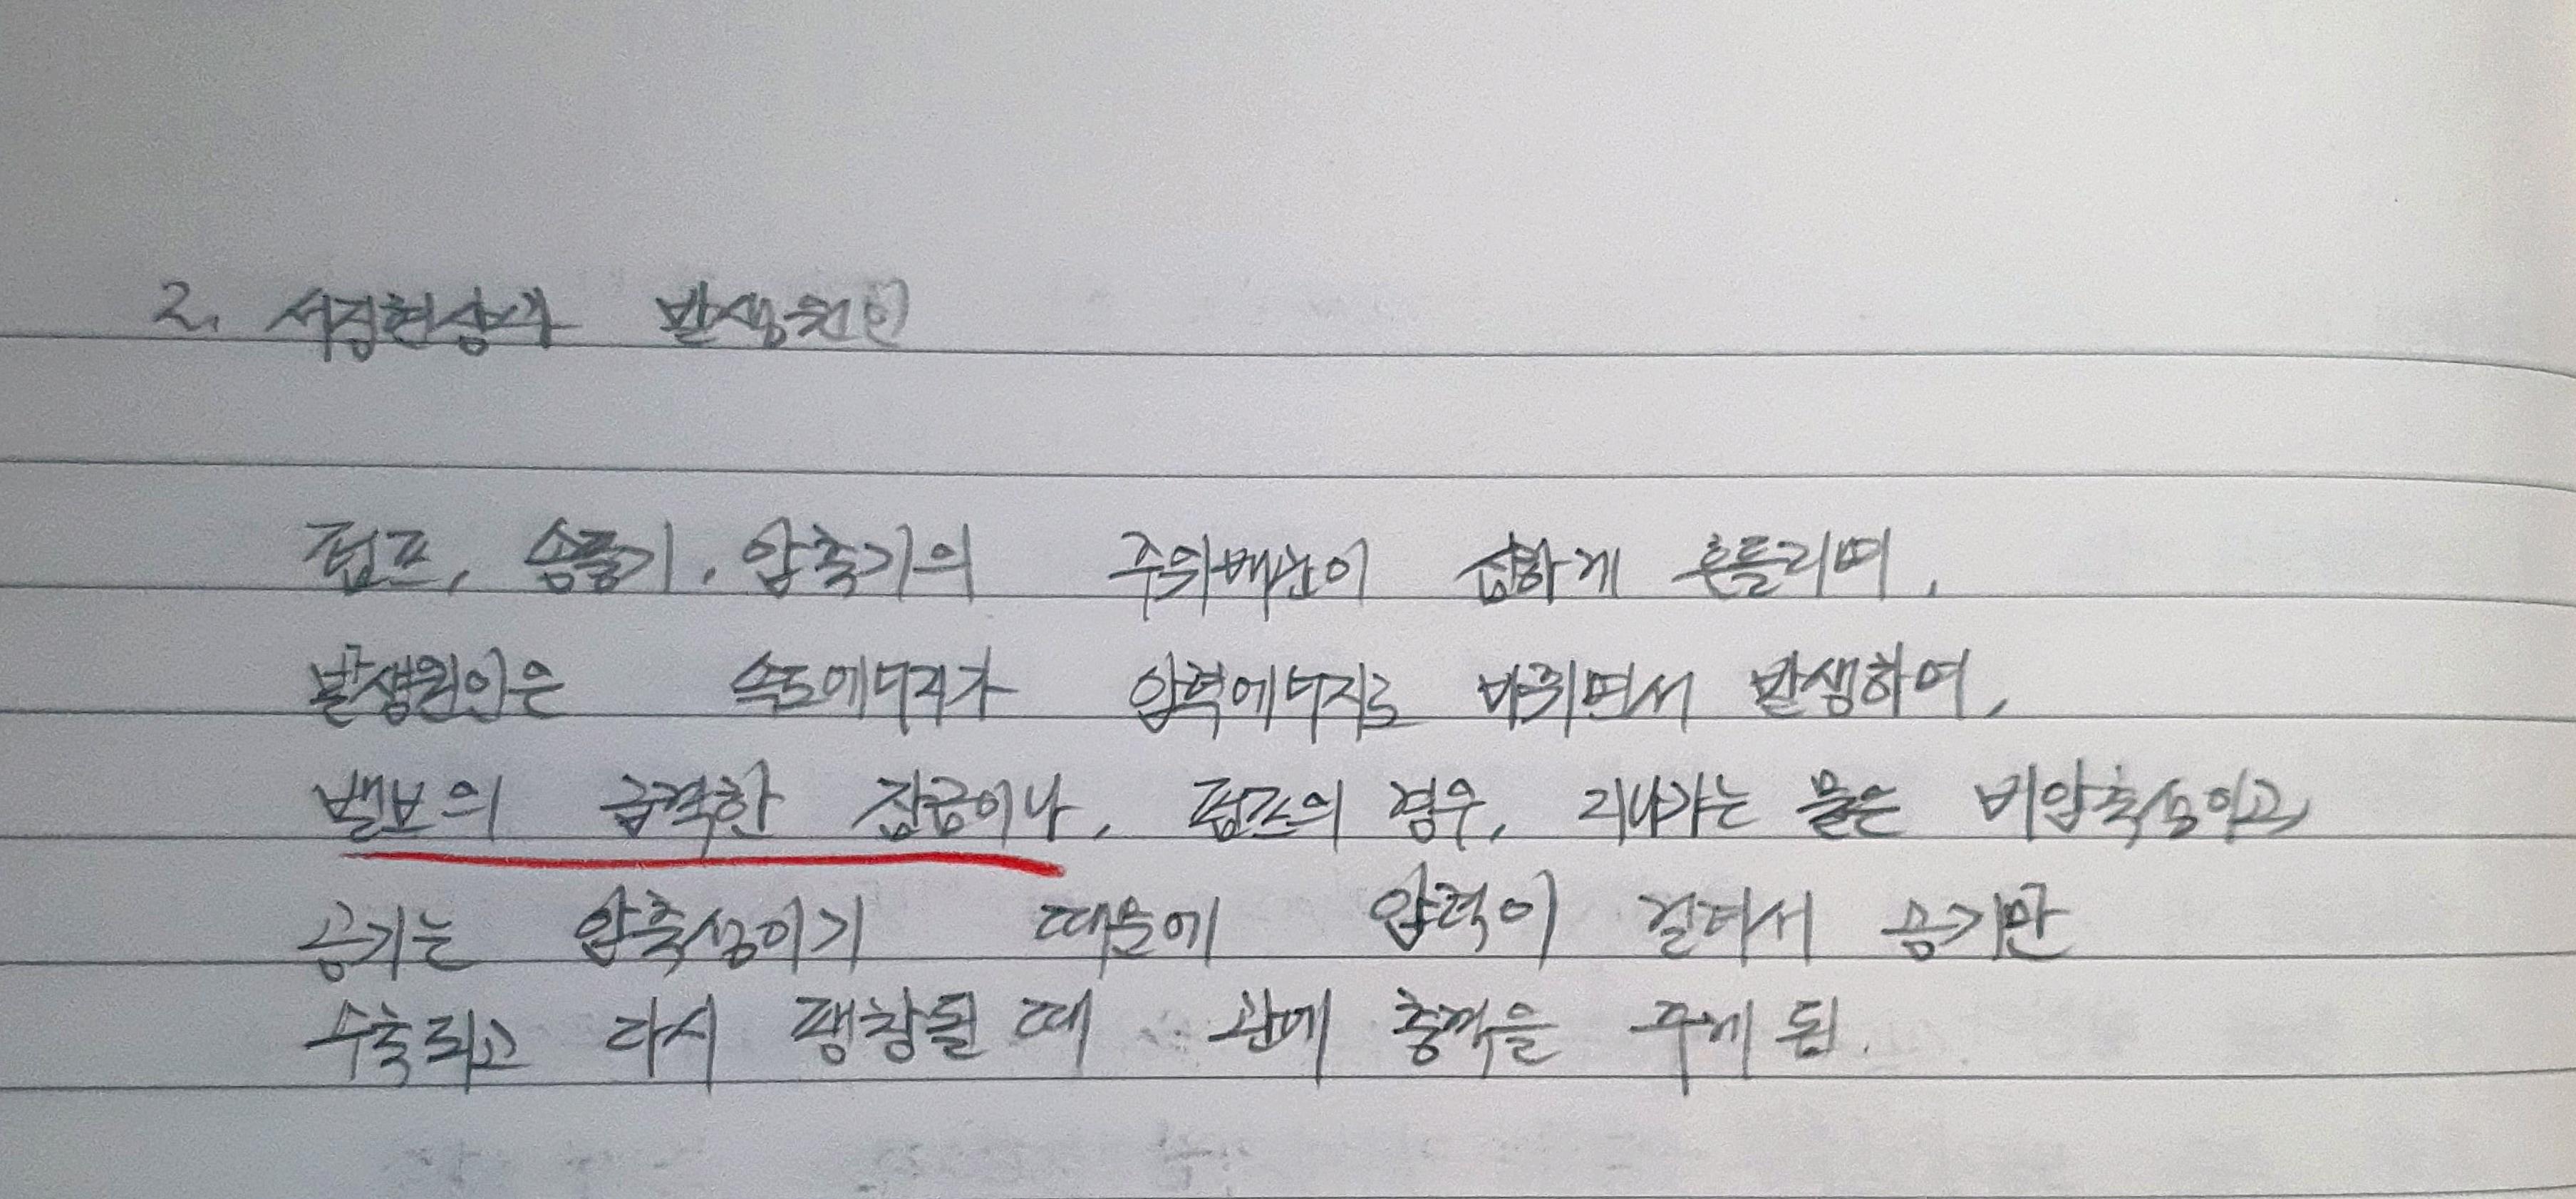 2. 서징현상과 발생원인
펌프, 송풍기, 압축기의 주위배관이 심하게 흔들리며,
발생원인은 속도에너지가 압력에너지로 바뀌면서 발생하여,
밸브의 급격한 잠금이나, 펌프의 경우, 지나가는 물은 비압축성이고,
공기는 압축성이기 때문에 압력이 걸려서 공기만
수축되고 다시 팽창될 때 관에 충격을 주게 됨.